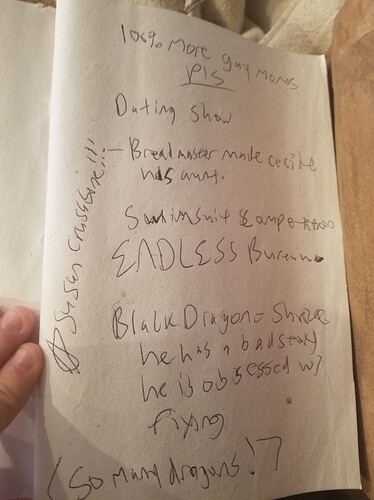 100% more gay moms
Pls
Dating show
— Breadmaster made Cecile
his aunt.
Swimsuit
ENDLESS
Black Dragon =
he has a bad story
he is obsessed w/
flying
(so many dragons!)
Susan